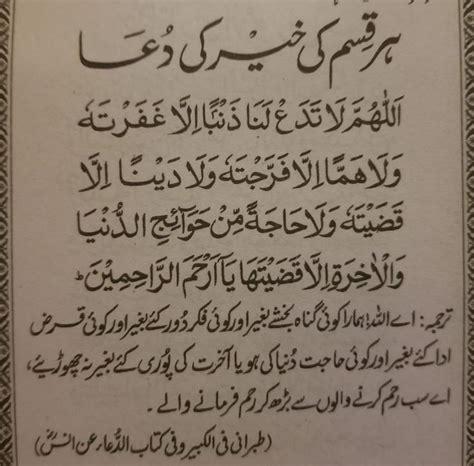 ہر قسم کی خیر کی دُعا
اَللّٰهُمَّ لَا تَدَعْ لَنَا ذَنْبًا اِلَّا غَفَرْتَهٗ
وَلَا هَمًّا اِلَّا فَرَّجْتَهٗ وَلَا دَيْنًا اِلَّا
قَضَيْتَهٗ وَلَا حَاجَةً مِّنْ حَوَآئِجِ الدُّنْيَا
وَالْاٰخِرَةِ اِلَّا قَضَيْتَهَا يَآ اَرْحَمَ الرَّاحِمِيْنَ ؕ
ترجمہ: اے اللہ! ہمارا کوئی گناہ بخشے بغیر اور کوئی فکر دُور کئے بغیر اور کوئی قرض
ادا کئے بغیر اور کوئی حاجت دُنیا کی ہو یا آخرت کی پُوری کئے بغیر نہ چھوڑیئے،
اے سب رحم کرنے والوں سے بڑھ کر رحم فرمانے والے۔
(طبرانی فی الکبیر و فی کتاب الدُّعاء عن انسؓ)